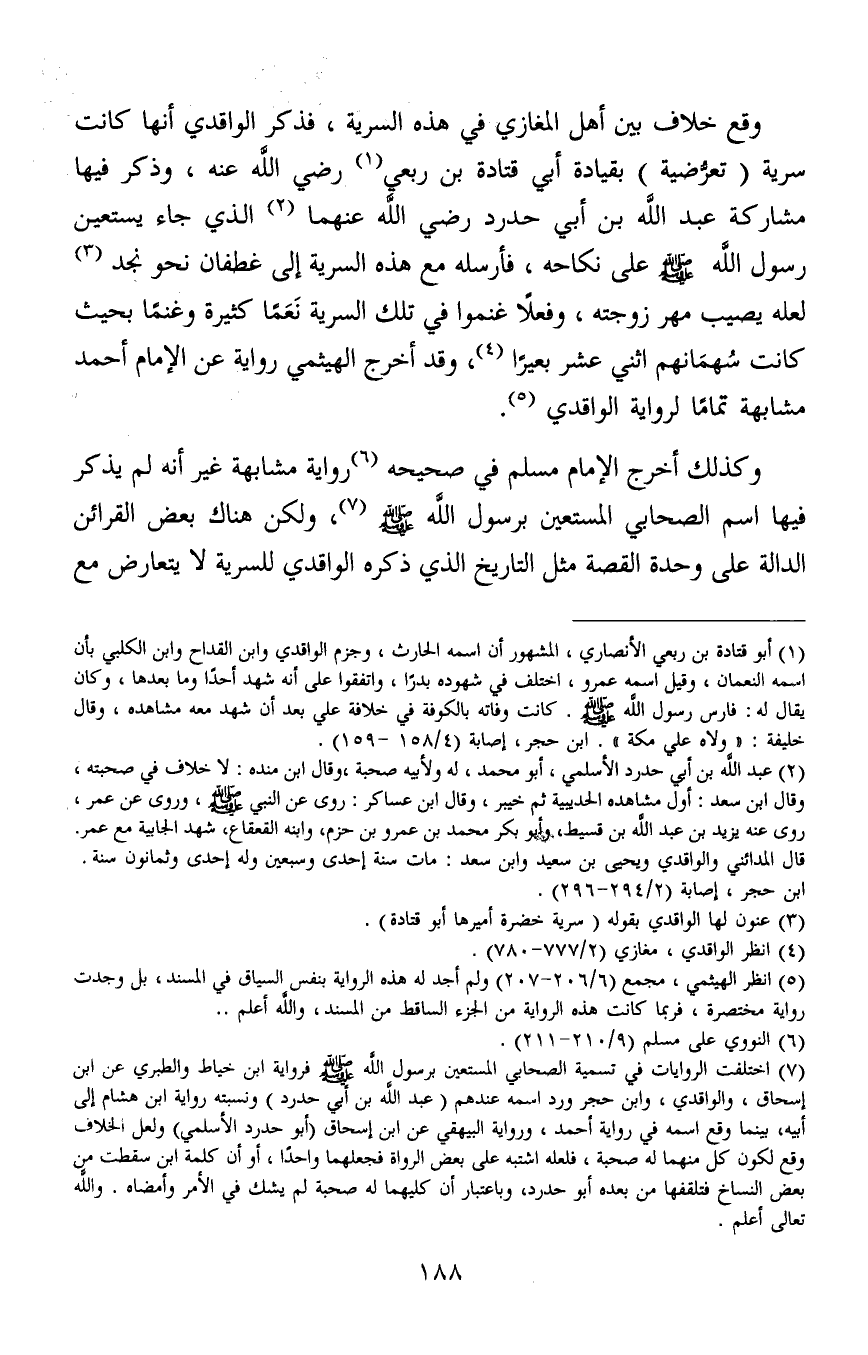 وقع خلاف بين أهل المغازي في هذه السرية ، فذكر الواقدي أنها كانت
سرية ( تعرُّضية ) بقيادة أبي قتادة بن ربعي(١) رضي اللَّه عنه ، وذكر فيها
مشاركة عبد اللَّه بن أبي حدرد رضي اللَّه عنهما (٢) الذي جاء يستعين
رسول اللَّه ﷺ على نكاحه ، فأرسله مع هذه السرية إلى غطفان نحو نجد (٣)
لعله يصيب مهر زوجته ، وفعلًا غنموا في تلك السرية نَعَمًا كثيرة وغنمًا بحيث
كانت سُهمَانهم اثني عشر بعيرًا (٤)، وقد أخرج الهيثمي رواية عن الإمام أحمد
مشابهة تمامًا لرواية الواقدي (٥).
وكذلك أخرج الإمام مسلم في صحيحه (٦)رواية مشابهة غير أنه لم يذكر
فيها اسم الصحابي المستعين برسول اللَّه ﷺ (٧)، ولكن هناك بعض القرائن
الدالة على وحدة القصة مثل التاريخ الذي ذكره الواقدي للسرية لا يتعارض مع
(١) أبو قتادة بن ربعي الأنصاري ، المشهور أن اسمه الحارث ، وجزم الواقدي وابن القداح وابن الكلبي بأن
اسمه النعمان ، وقيل اسمه عمرو ، اختلف في شهوده بدرًا ، واتفقوا على أنه شهد أحدًا وما بعدها ، وكان
يقال له : فارس رسول اللَّه ﷺ . كانت وفاته بالكوفة في خلافة علي بعد أن شهد معه مشاهده ، وقال
خليفة : « ولاه علي مكة » . ابن حجر ، إصابة (١٥٨/٤ –١٥٩) .
(٢) عبد اللَّه بن أبي حدرد الأسلمي ، أبو محمد ، له ولأبيه صحبة ،وقال ابن منده : لا خلاف في صحبته ،
وقال ابن سعد : أول مشاهده الحديبية ثم خيبر ، وقال ابن عساكر : روى عن النبي ﷺ ، وروى عن عمر ،
روى عنه يزيد بن عبد اللَّه بن قسيط، وأبو بكر محمد بن عمرو بن حزم، وابنه القعقاع، شهد الجابية مع عمر.
قال المدائني والواقدي ويحيى بن سعيد وابن سعد : مات سنة إحدى وسبعين وله إحدى وثمانون سنة .
ابن حجر ، إصابة (٢٩٤/٢–٢٩٦) .
(٣) عنون لها الواقدي بقوله ( سرية خضرة أميرها أبو قتادة) .
(٤) انظر الواقدي ، مغازي (٧٧٧/٢–٧٨٠) .
(٥) انظر الهيثمي ، مجمع (٢٠٦/٦–٢٠٧) ولم أجد له هذه الرواية بنفس السياق في المسند ، بل وجدت
رواية مختصرة ، فربما كانت هذه الرواية من الجزء الساقط من المسند ، واللَّه أعلم ..
(٦) النووي على مسلم (٢١٠/٩–٢١١) .
(٧) اختلفت الروايات في تسمية الصحابي المستعين برسول اللَّه ﷺ فرواية ابن خياط والطبري عن ابن
إسحاق ، والواقدي ، وابن حجر ورد اسمه عندهم ( عبد اللَّه بن أبي حدرد ) ونسبته رواية ابن هشام إلى
أبيه، بينما وقع اسمه في رواية أحمد ، ورواية البيهقي عن ابن إسحاق (أبو حدرد الأسلمي) ولعل الخلاف
وقع لكون كل منهما له صحبة ، فلعله اشتبه على بعض الرواة فجعلهما واحدًا ، أو أن كلمة ابن سقطت من
بعض النساخ فتلقفها من بعده أبو حدرد، وباعتبار أن كليهما له صحبة لم يشك في الأمر وأمضاه . واللَّه
تعالى أعلم .
١٨٨